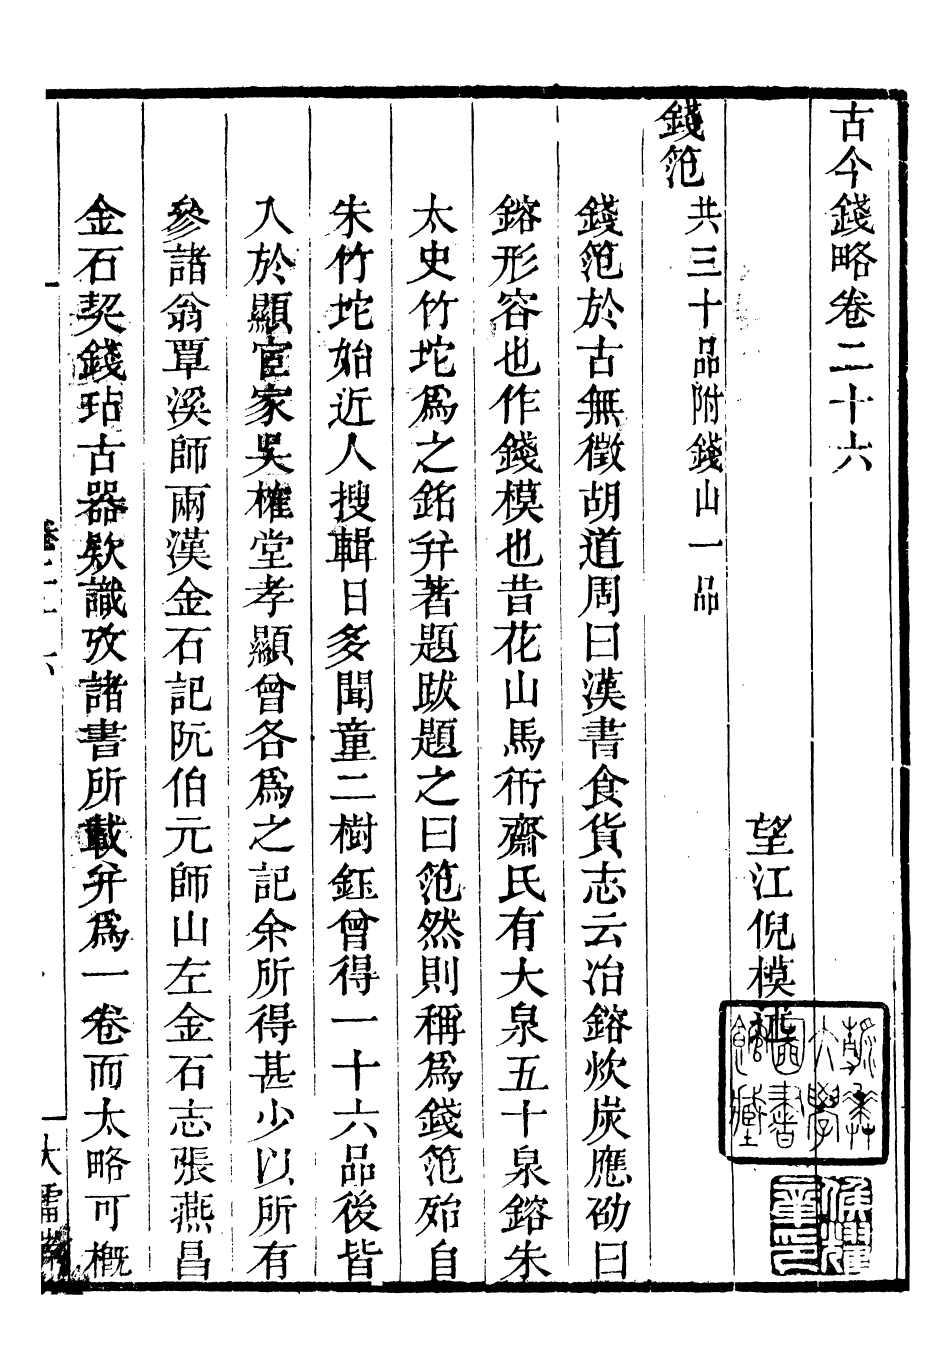 古今錢略卷二十六
望江倪模述
錢笵共三十品附錢山一品
錢笵於古無徵胡道周曰漢書食貨志云冶鎔炊炭應劭曰
鎔形容也作錢模也昔花山馬衎齋氏有大泉五十泉鎔朱
太史竹坨爲之銘幷著題跋題之曰笵然則稱爲錢笵殆自
朱竹坨始近人搜輯日多聞童二樹鈺曾得一十六品後皆
入於顯宦家吳榷堂孝顯曾各爲之記余所得甚少以所有
參諸翁覃溪師兩漢金石記阮伯元師山左金石志張燕昌
金石契錢玷古器欵識攷諸書所載幷爲一卷而太略可概
卷二十六
一
大雷岸